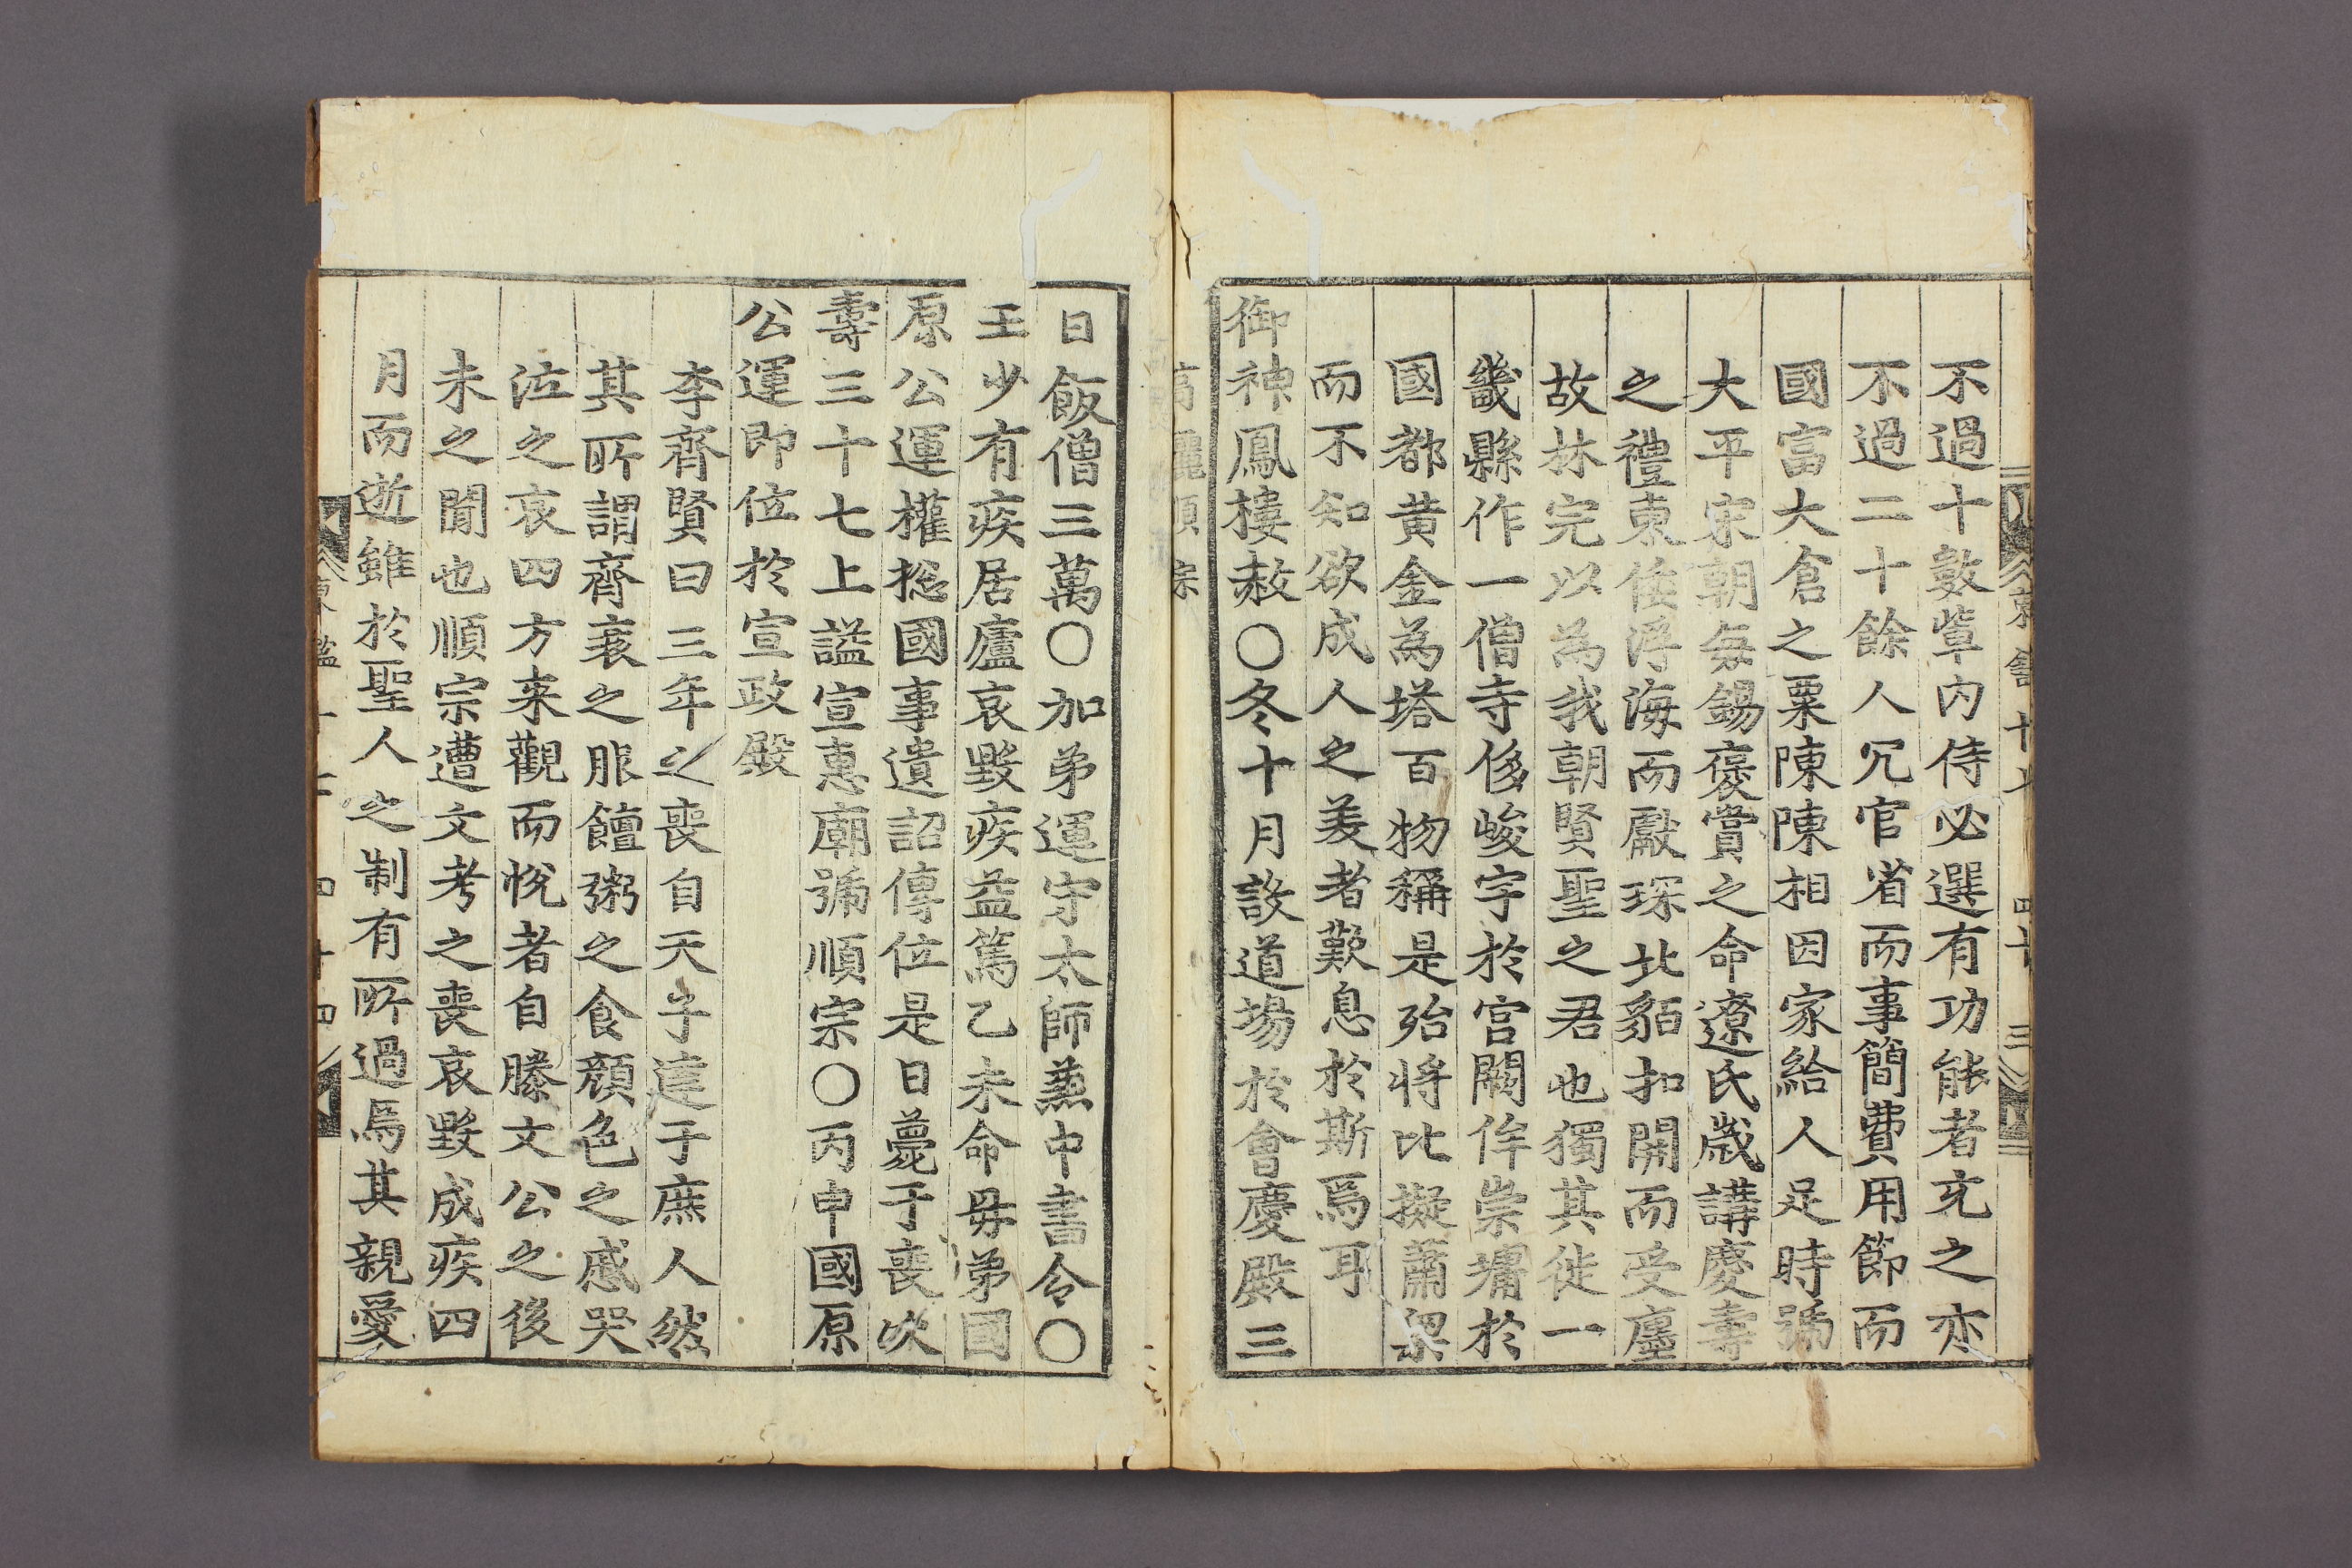 不過十數軰內侍必選有功能者充之亦
不過二十餘人冗官省而事簡費用節而
國富大倉之粟陳陳相因家給人足時號
大平宋朝每錫褒賞之命遼氏歲講慶壽
之禮東倭浮海而獻琛北貊扣關而受廛
故林完以為我朝賢聖之君也獨其徙一
畿縣作一僧寺侈峻宇於宮闕侔崇墉於
國都黃金為塔百物稱是殆將比擬蕭梁
而不知欲成人之美者歎息於斯焉耳
御神鳳樓赦○冬十月設道場於會慶殿三
高麗順宗
日飯僧三萬○加弟運守太師兼中書令○
王少有疾居廬哀毀疾益篤乙未命毋弟國
原公運權摠國事遺詔傳位是日薨于喪次
壽三十七上謚宣惠廟號順宗○丙申國原
公運即位於宣政殿
李齊賢曰三年之喪自天子達于庶人然
其所謂齊衰之服饘粥之食顏色之慼哭
泣之哀四方來觀而悅者自滕文公之後
未之聞也順宗遭文考之喪哀毀成疾四
月而逝雖於聖人之制有所過焉其親愛